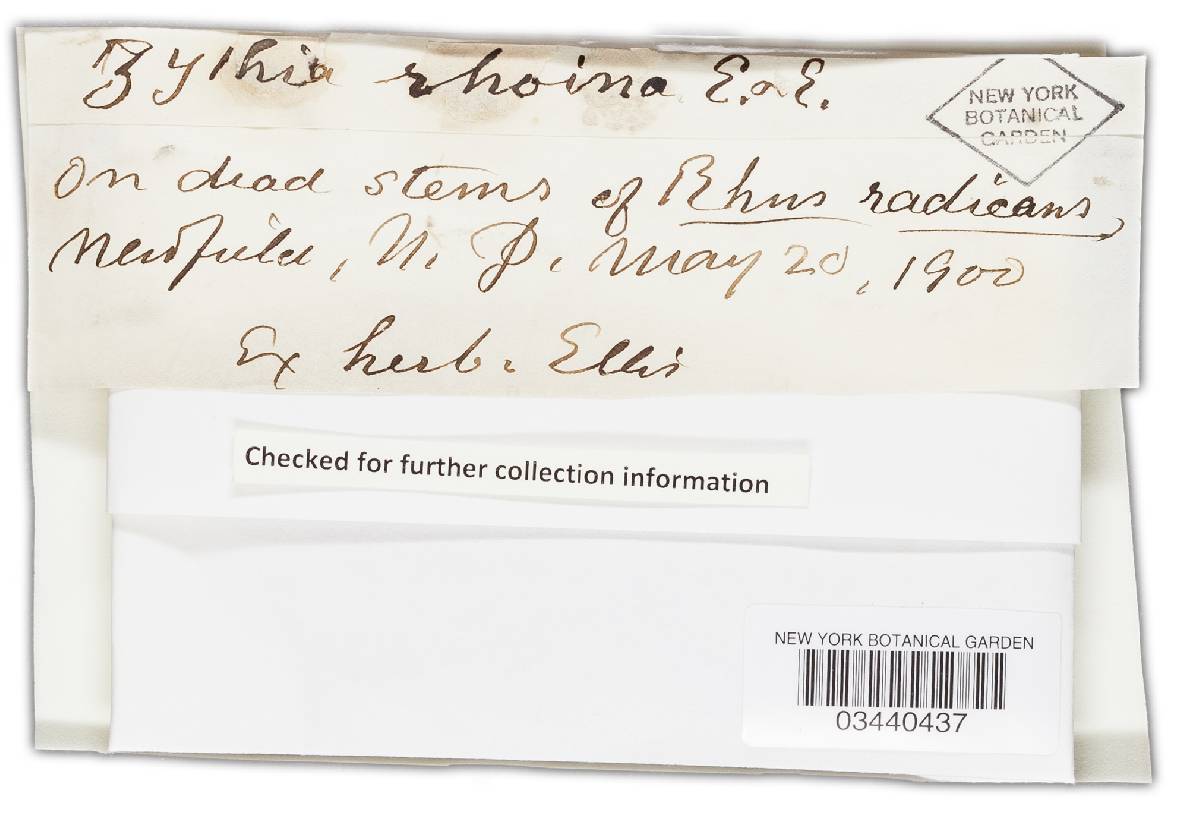 Zythia rhoina E. & E.
NEW YORK
BOTANICAL
GARDEN
On dead stems of Rhus radicans,
Newfield, N. J. May 20, 1900
Ex herb. Ellis
Checked for further collection information
NEW YORK BOTANICAL GARDEN
03440437